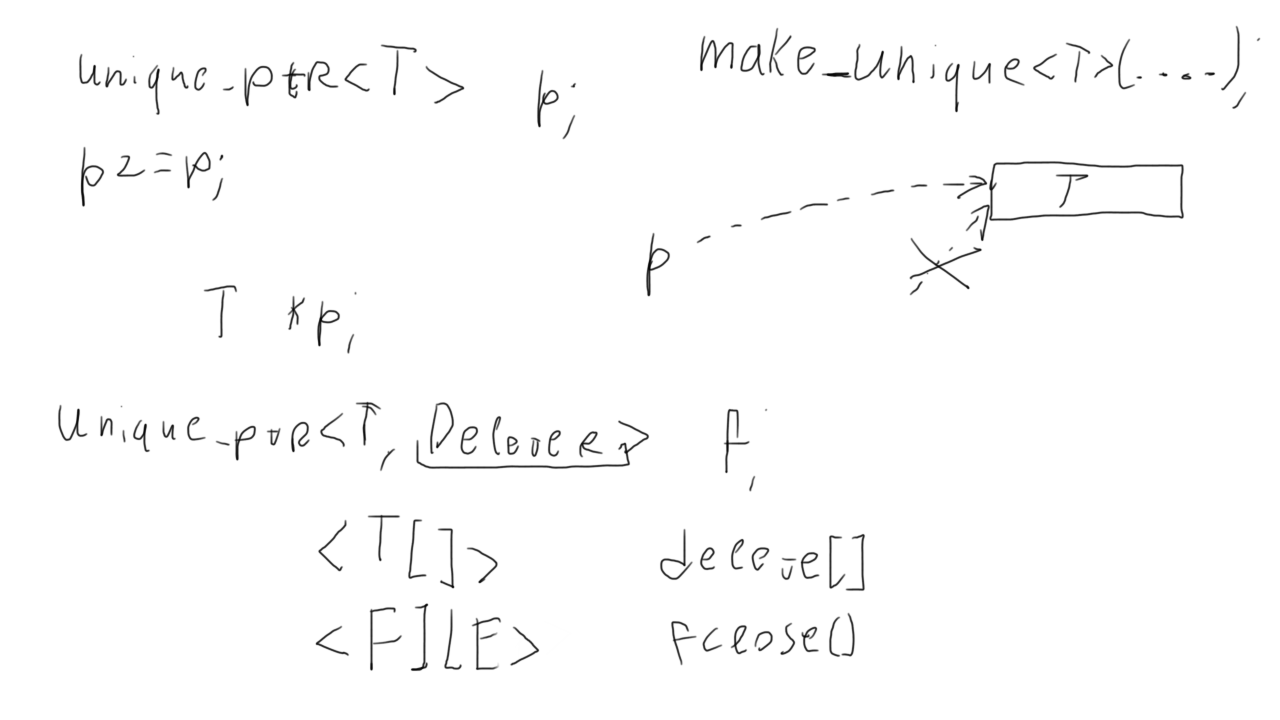 unique_ptr<T> p;
make_unique<T>(.....);
p2=p;
T
p
T *p;
unique_ptr<T, Deleter> f;
<T[]> delete[]
<FILE> fclose()